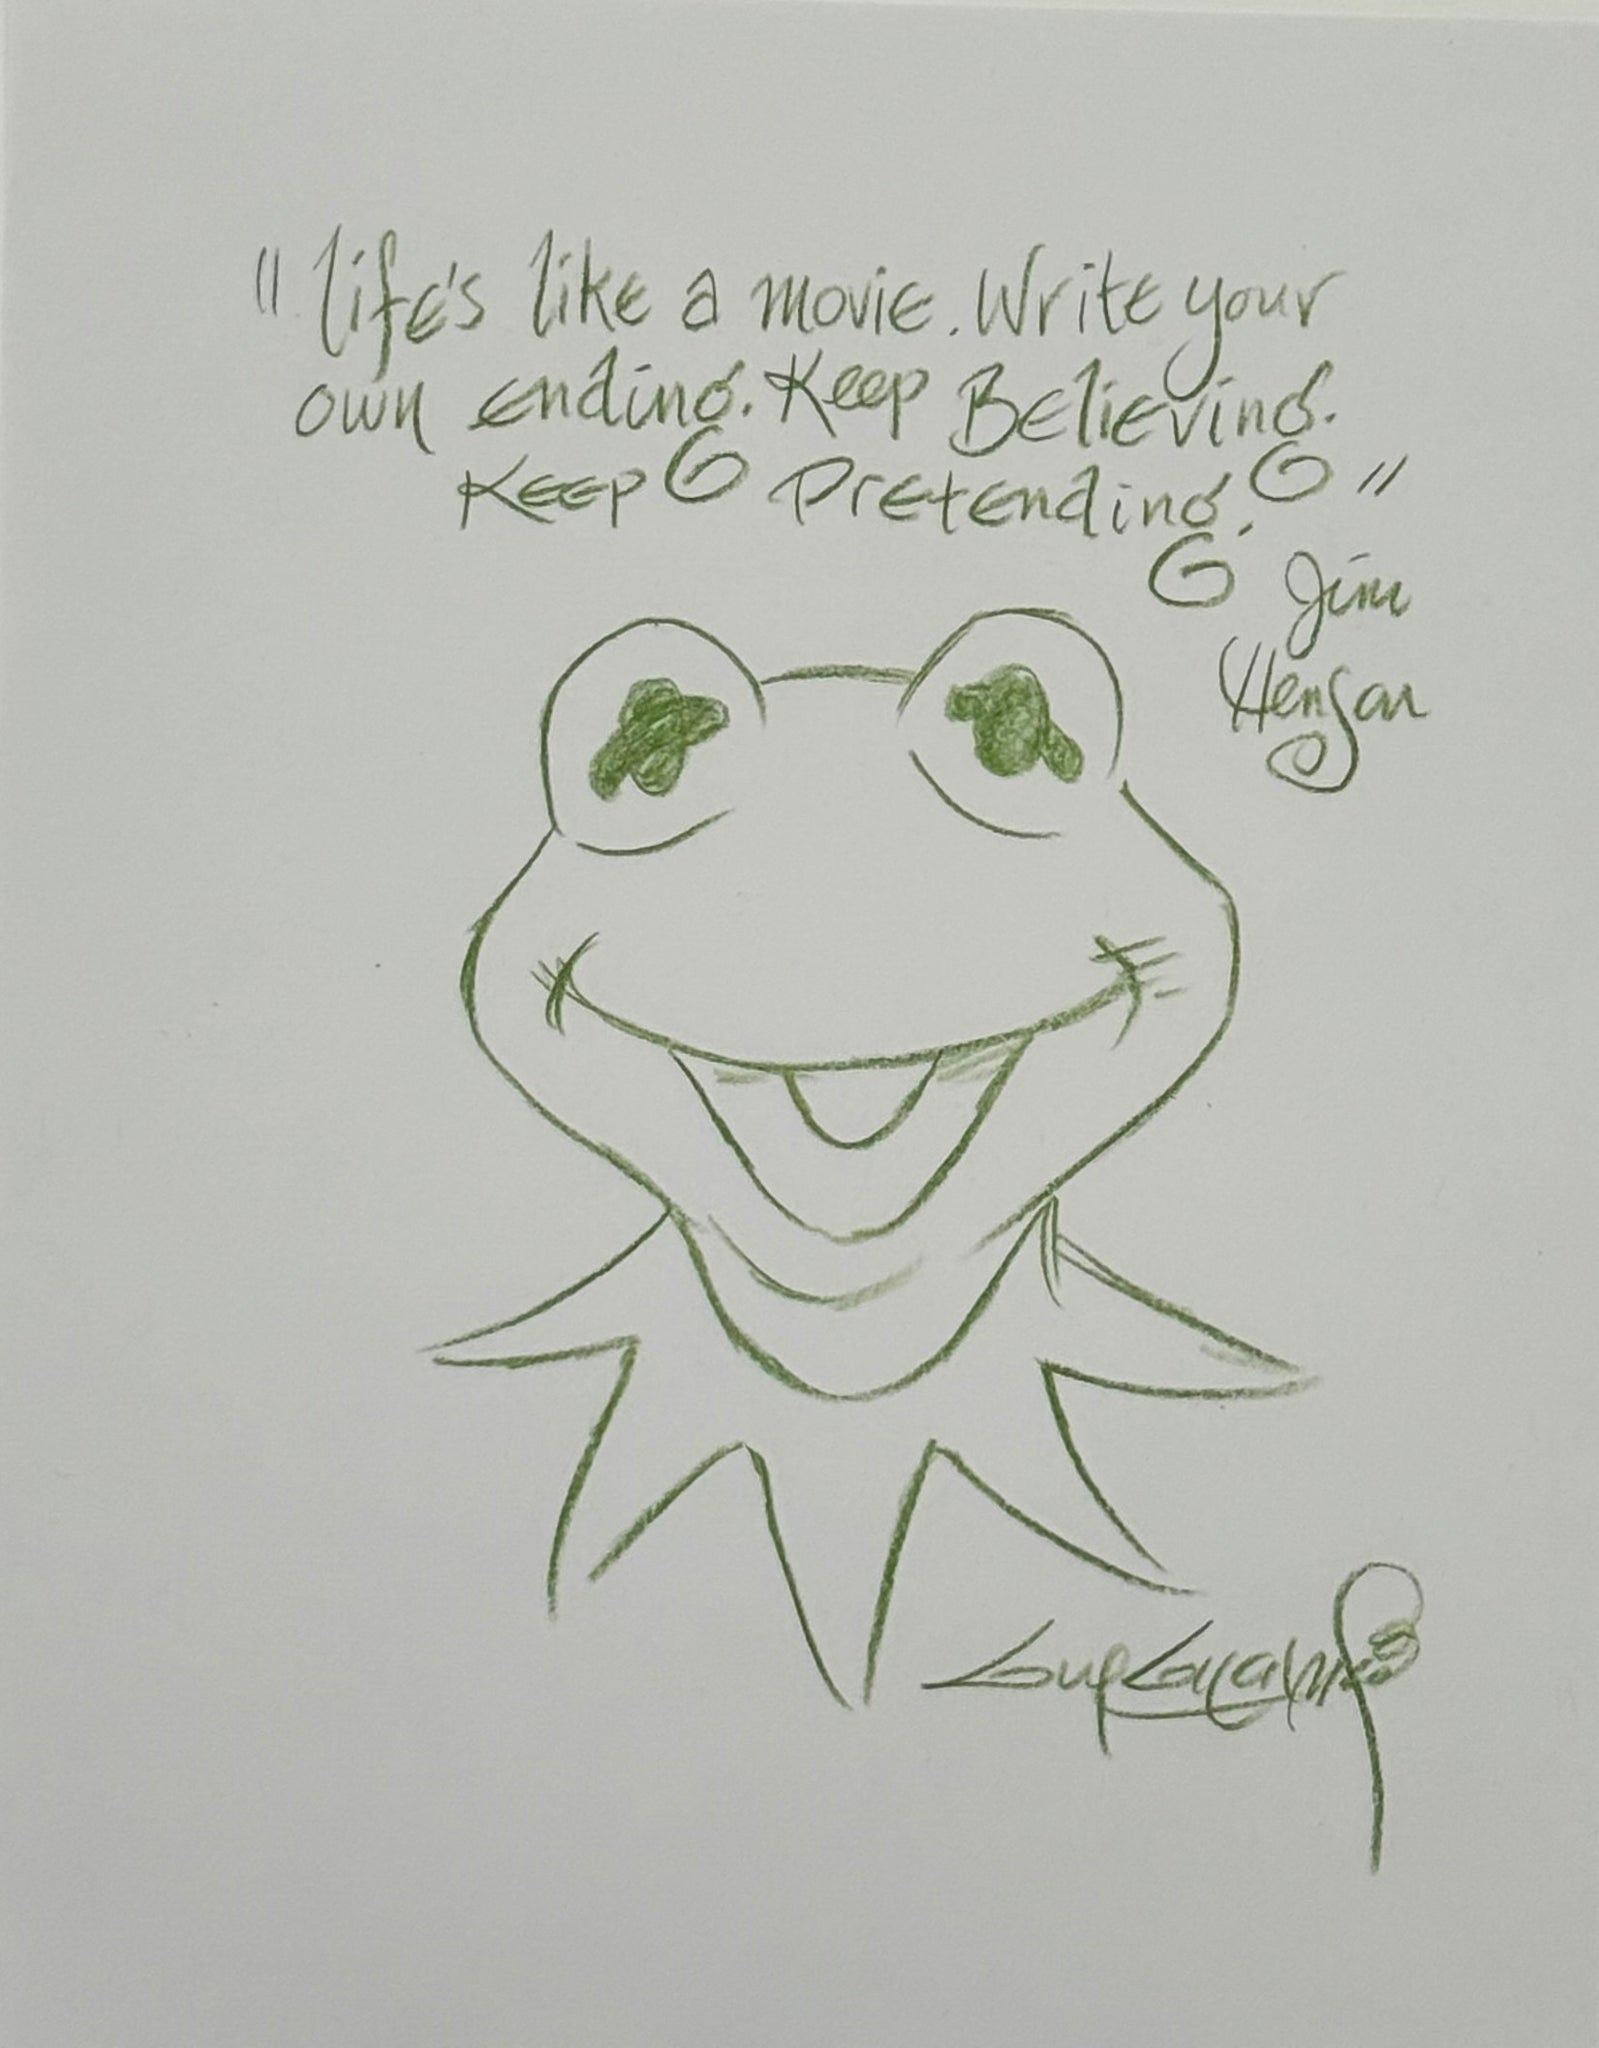 "Life's like a movie. Write your
own ending. Keep Believing.
Keep Pretending."
Jim
Henson